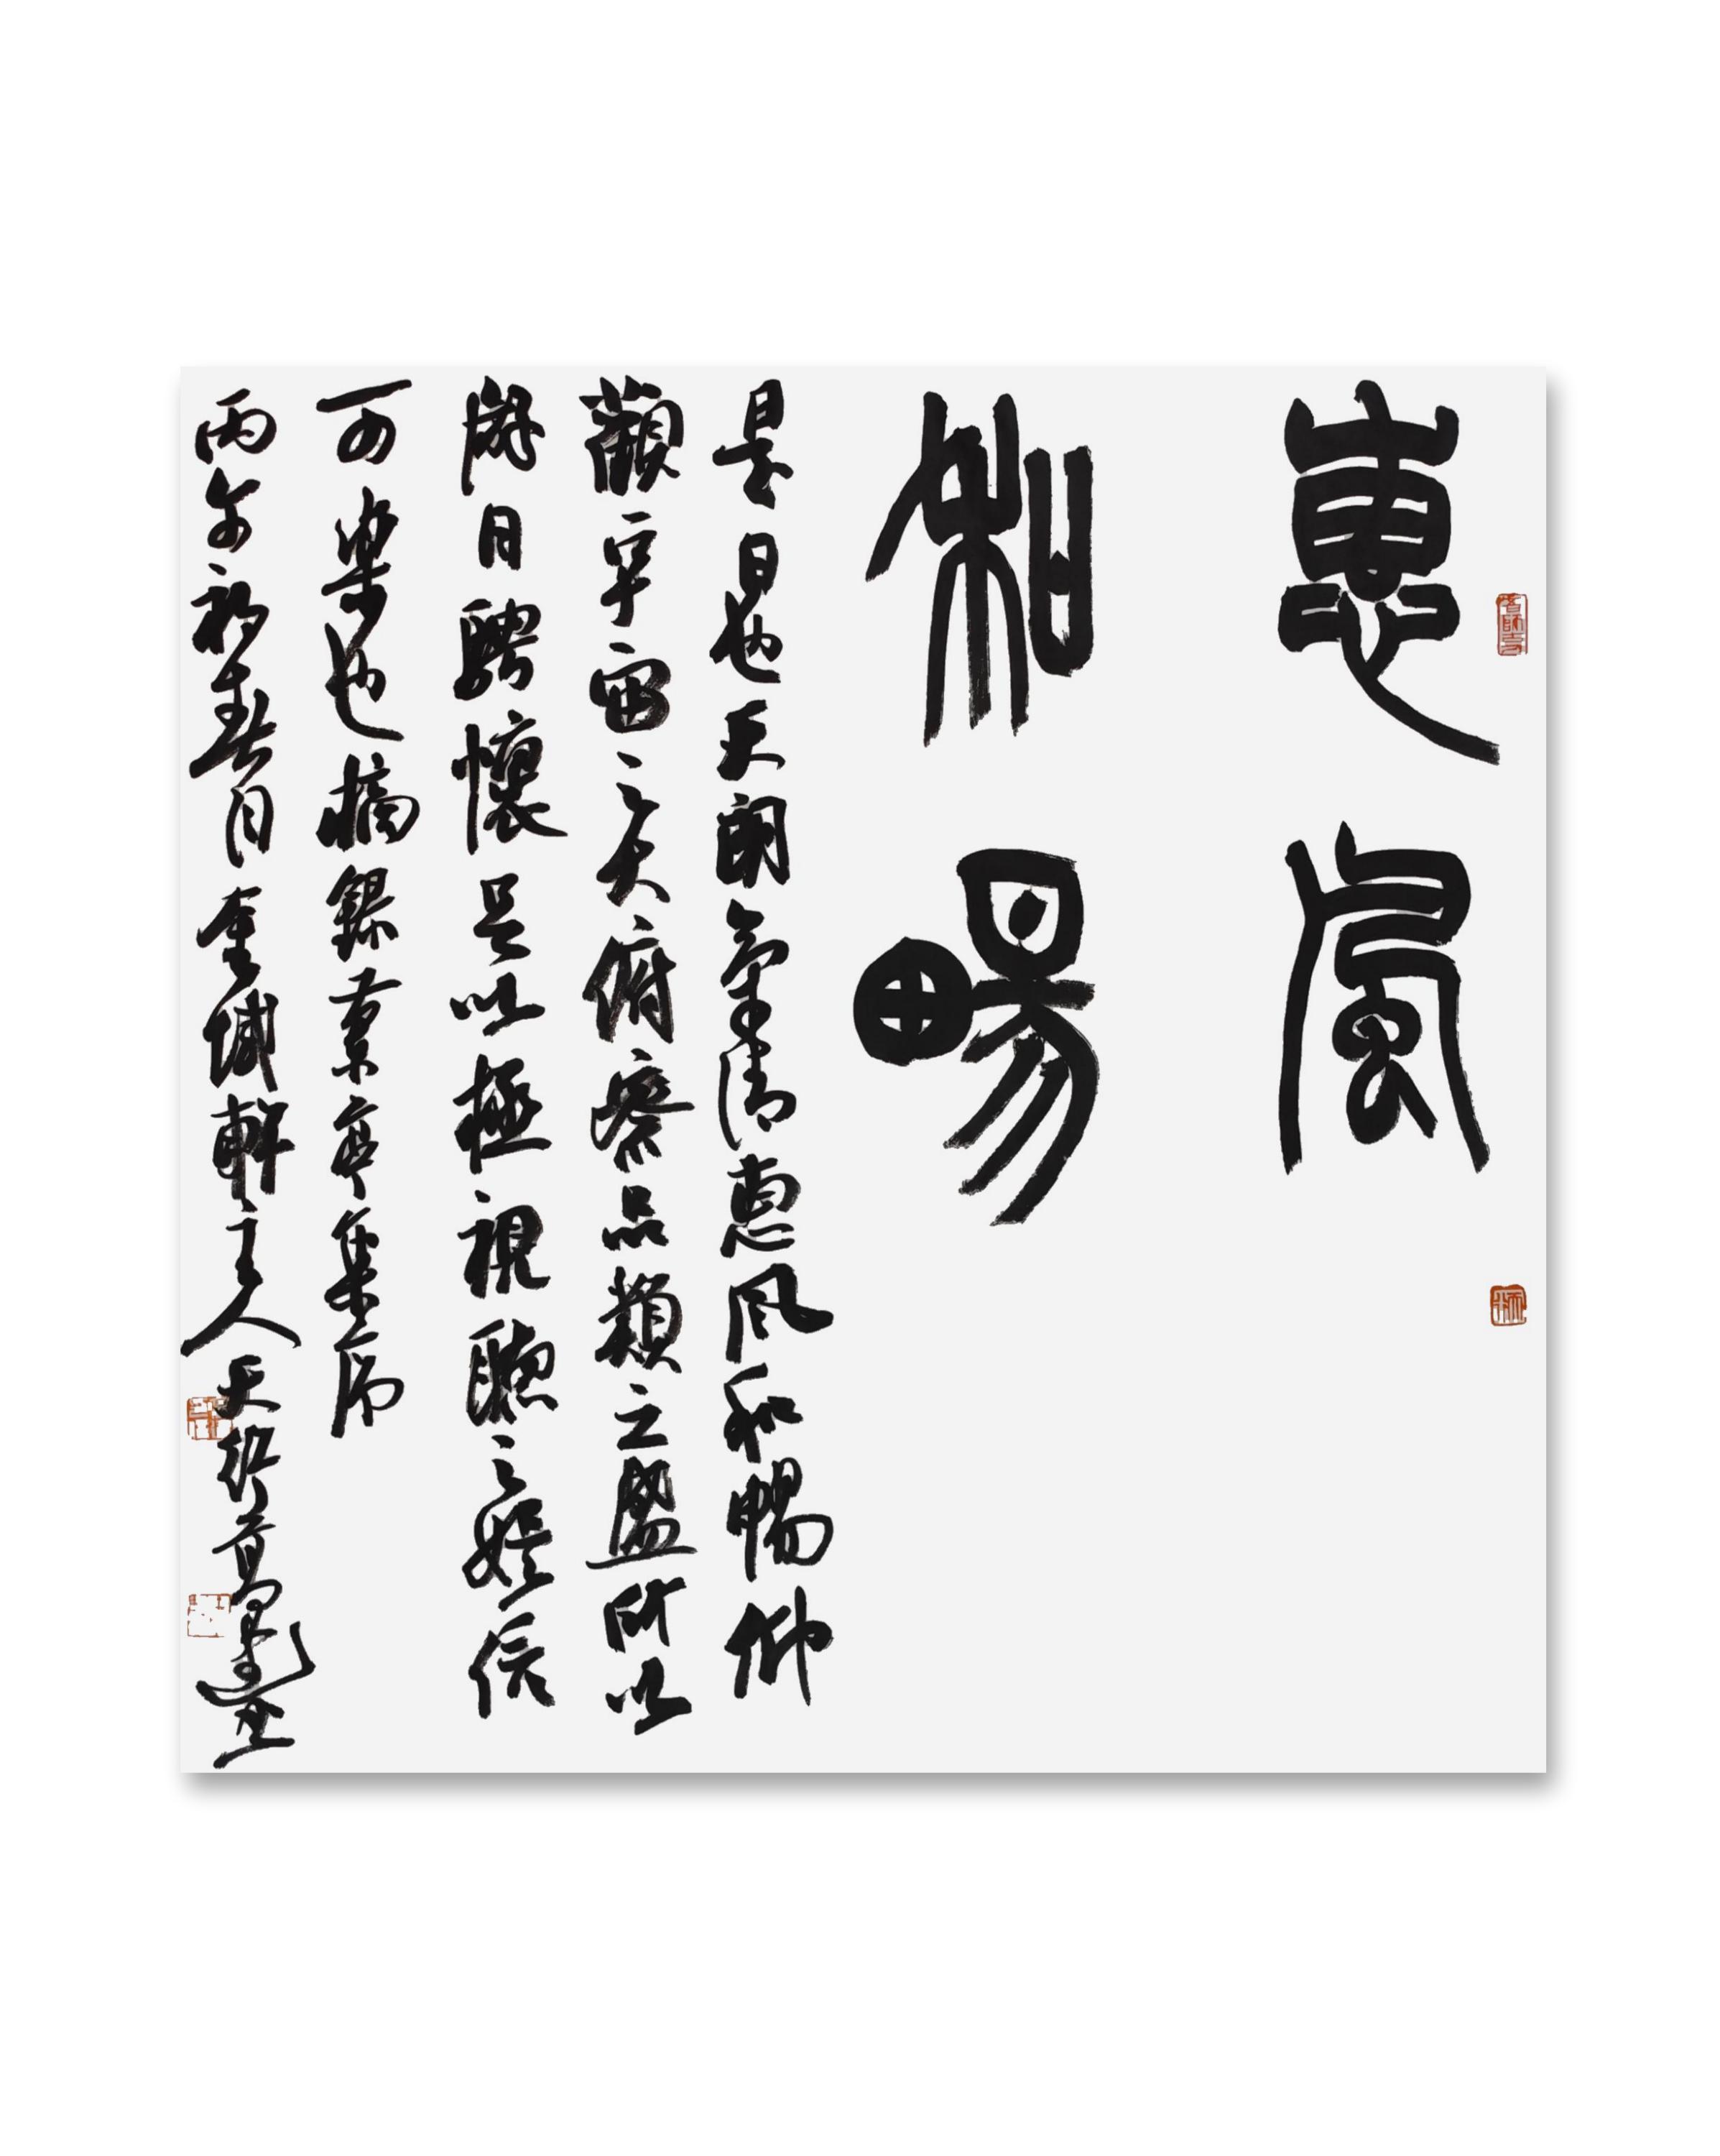 惠風
和暢
是日也天朗氣清惠風和暢仰
觀宇宙之大俯察品類之盛所以
遊目騁懷足以極視聽之娛信
可樂也摘錄蘭亭集序
丙午初春月
軒主人天